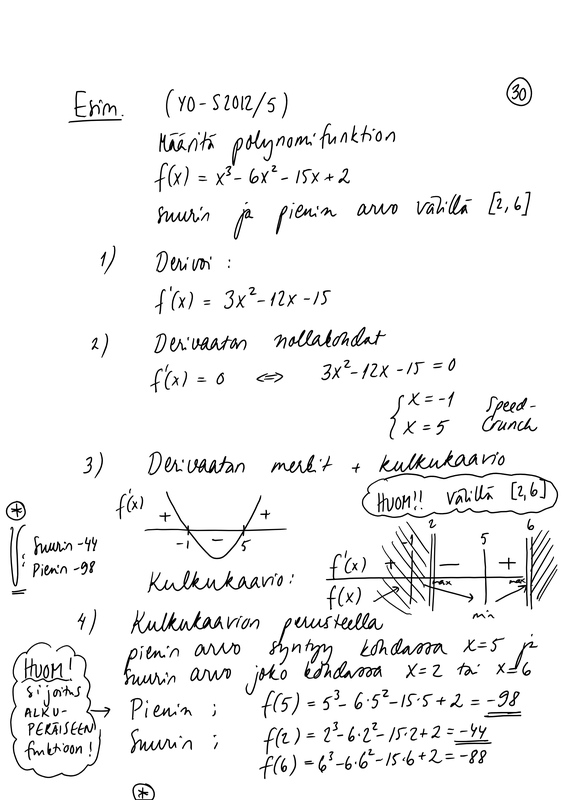 30
Esim. (YO-S2012/5)
Määritä polynomifunktion
f(x) = x³ - 6x² - 15x + 2
suurin ja pienin arvo välillä [2,6]
1) Derivoi :
f'(x) = 3x² - 12x - 15
2) Derivaatan nollakohdat
f'(x) = 0 ⇔ 3x² - 12x - 15 = 0
{ x = -1
x = 5
Speed-
Crunch
3) Derivaatan merkit + kulkukaavio
f'(x) + - +
-1 5
HUOM!! välillä [2,6]
-1 2 5 6
f'(x) + - +
f(x) max min max
Kulkukaavio:
*
V: Suurin -44
Pienin -98
4) Kulkukaavion perusteella
pienin arvo syntyy kohdassa x=5 ja
suurin arvo joko kohdassa x=2 tai x=6
HUOM!
sijoitus
ALKU-
PERÄISEEN
funktioon!
→ Pienin ; f(5) = 5³ - 6·5² - 15·5 + 2 = -98
Suurin ; f(2) = 2³ - 6·2² - 15·2 + 2 = -44
f(6) = 6³ - 6·6² - 15·6 + 2 = -88
*